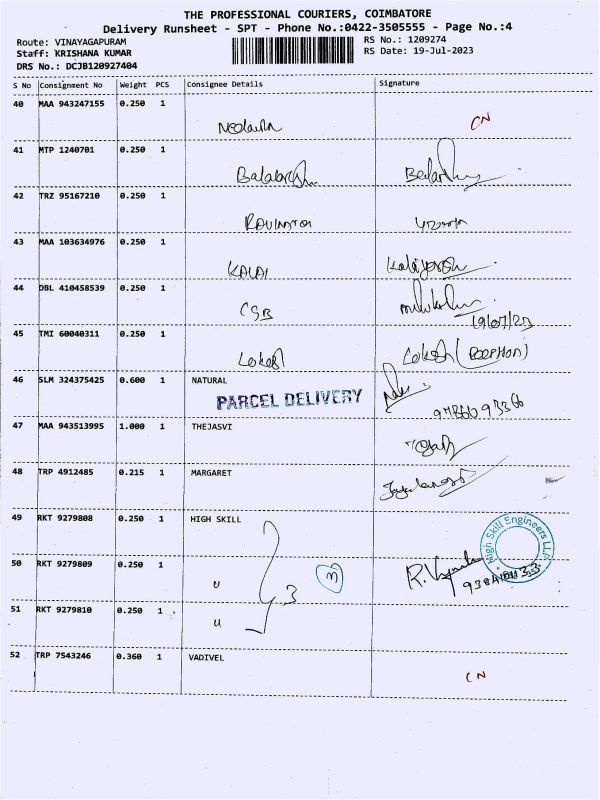 THE PROFESSIONAL COURIERS, COIMBATORE
Delivery Runsheet - SPT - Phone No.:0422-3505555 - Page No.:4
Route: VINAYAGAPURAM
RS No.: 1209274
Staff: KRISHANA KUMAR
RS Date: 19-Jul-2023
DRS No.: DCJB120927404
S No Consignment No Weight PCS Consignee Details Signature
40 MAA 943247155 0.250 1
CN
41 MTP 1240701 0.250 1
42 TRZ 95167210 0.250 1
43 MAA 103634976 0.250 1
KALAI
44 DBL 410458539 0.250 1
CSB
19/07/23
45 TMI 60040311 0.250 1
Lokesh Lokesh
46 SLM 324375425 0.600 1 NATURAL
PARCEL DELIVERY
47 MAA 943513995 1.000 1 THEJASVI
48 TRP 4912485 0.215 1 MARGARET
49 RKT 9279808 0.250 1 HIGH SKILL
High Skill Engineers LLP
50 RKT 9279809 0.250 1
u 3
51 RKT 9279810 0.250 1
u
52 TRP 7543246 0.360 1 VADIVEL
CN